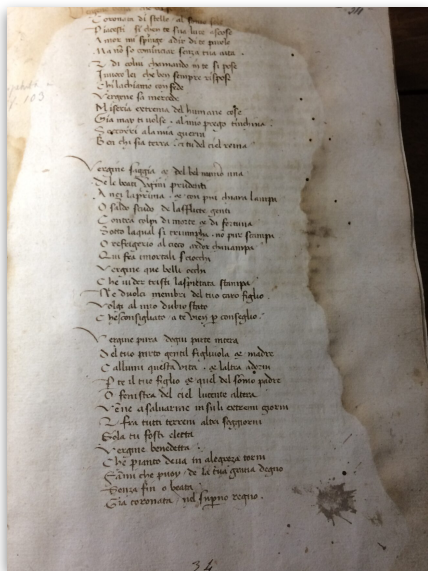 Coronata di stelle . al somo sole
Piacesti si chen te sua luce ascose
Amor mi spinge adir di te parole
Ma no so cominciar senza tua aita .
E di colui chamando in te si pose
Invoco lei che ben sempre rispose
Chi lachiamo con fede
Vergine sa mercede
Miseria extrema del humane cose
Gia mai ti uolse . al mio prego tinchina .
Soccorri ala mia guerra
Ben chi sia terra . et tu del ciel reina
Vergine saggia & del bel numero una
De le beate vigini prudenti
Anzi la prima . & con piu chiara lampa
O saldo scudo de lafflicte genti
Contra colpi di morte & di fortuna
Sotto laqual si triumpha . no pur scampa
O refrigerio al cieco ardor chauampa
Qui fra i mortali sciocchi
Vergine que belli occhi
Che uider tristi laspietata stampa
Ne duolci membri del tuo caro figlio .
Volgi al mio dubio stato
Chesconsigliato a te vien p conseglio .
Vergine pura dogni parte intera
Del tuo parto gentil figliuola & madre
Callumi questa vita . & laltra adorni
P te il tuo figlio & quel del somo padre
O fenestra del ciel lucente altera
Vene a saluarme in su li extremi giorni
E fra tutti terreni altri soggiorni
Sola tu fosti eletta
Vergine benedetta .
Che pianto deua in alegreza torni
Fami che puoy . de la tua gracia degno
Senza fin o beata .
Gia coronata . nel supno regno .
34